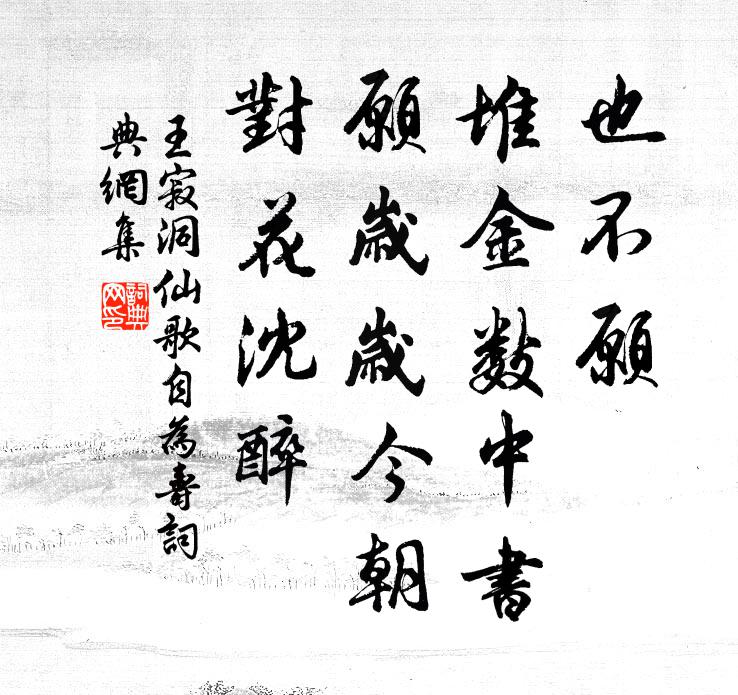 也不願
堆金數中書
願歲歲今朝
對花沈醉
王寂洞仙歌自為壽詞
典網集
詞典
网印